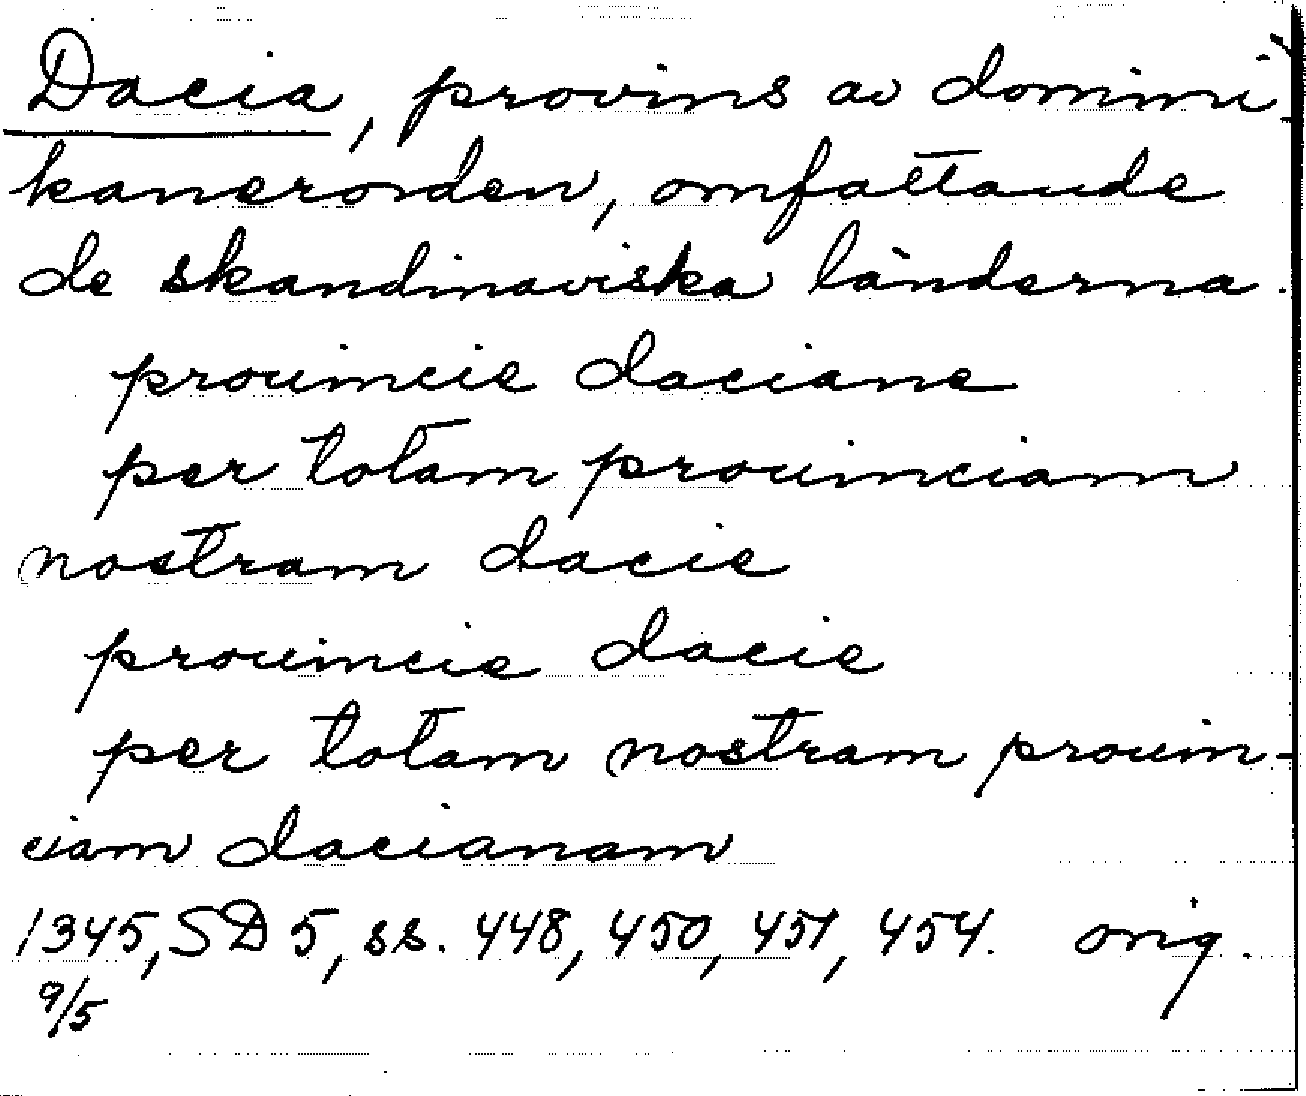 Dacia, provins av domini-
kanerorden, omfattande
de skandinaviska länderna.
prouincie daciane
per totam prouinciam
nostram dacie
prouincie dacie
per totam nostram prouin-
ciam dacianam
1345, SD 5, ss. 448, 450, 451, 454. orig.
9/5